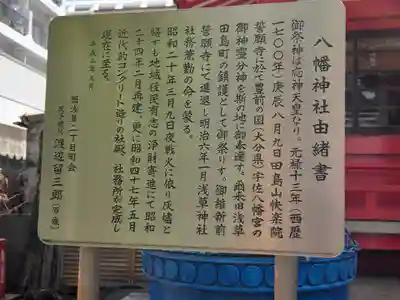 八幡神社由緒書
御祭神は応神天皇なり。元禄十三年(西歴
一七〇〇年)庚辰八月九日田島山快楽院
誓願寺に於て豊前の国(大分県)宇佐八幡宮の
御神霊分神を斯の地に御奉遷す。爾来旧浅草
田島町の鎮護として御祭りす。御維新前
誓願寺にて進退し明治六年一月浅草神社
社務兼勤の命を蒙る。
昭和二十年三月九日夜戦火に依り灰燼と
帰す。地域住民有志の浄財寄進にて昭和
二十四年二月再建、更に昭和四十七年五月
近代的コンクリート造りの社殿、社務所が完成し
現在に至る。
平成二年九月
西浅草二丁目町会
渡辺留三郎